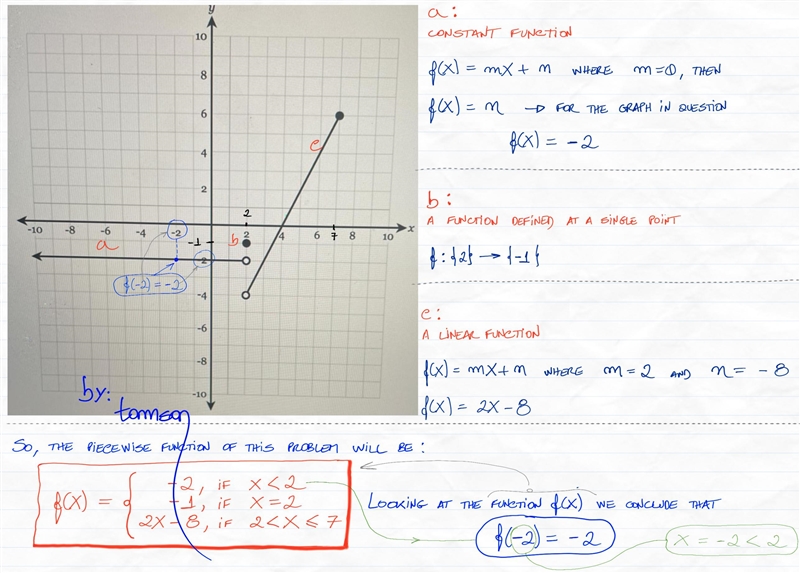 y
10
8
6
4
2
-10 -8 -6 -4 -2 -1 2 4 6 7 8 10 x
-2
-4
-6
-8
-10
a
b
c
f(-2) = -2
by:
tomson
a:
CONSTANT FUNCTION
f(x) = mx + n WHERE m=0, THEN
f(x) = n → FOR THE GRAPH IN QUESTION
f(x) = -2
b:
A FUNCTION DEFINED AT A SINGLE POINT
f: {2} → {-1}
c:
A LINEAR FUNCTION
f(x) = mx+n WHERE m=2 AND n= -8
f(x) = 2x-8
SO, THE PIECEWISE FUNCTION OF THIS PROBLEM WILL BE:
f(x) = { -2, IF x<2
-1, IF x=2
2x-8, IF 2<x≤7
LOOKING AT THE FUNCTION f(x) WE CONCLUDE THAT
f(-2) = -2
x = -2 < 2